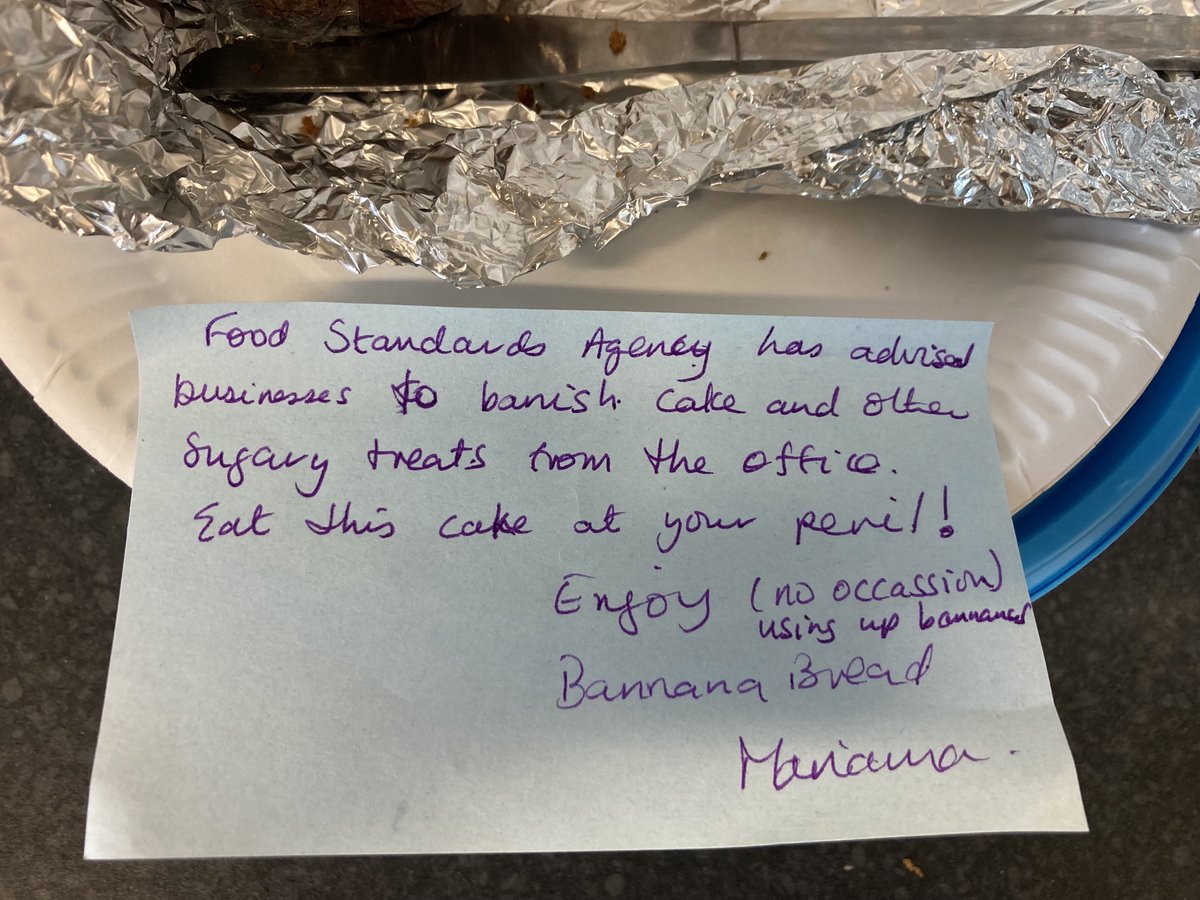 Food Standards Agency has advised
businesses to banish cake and other
Sugary treats from the office.
Eat this cake at your peril!
Enjoy (no occassion)
using up bannanas
Bannana Bread
Mariama.